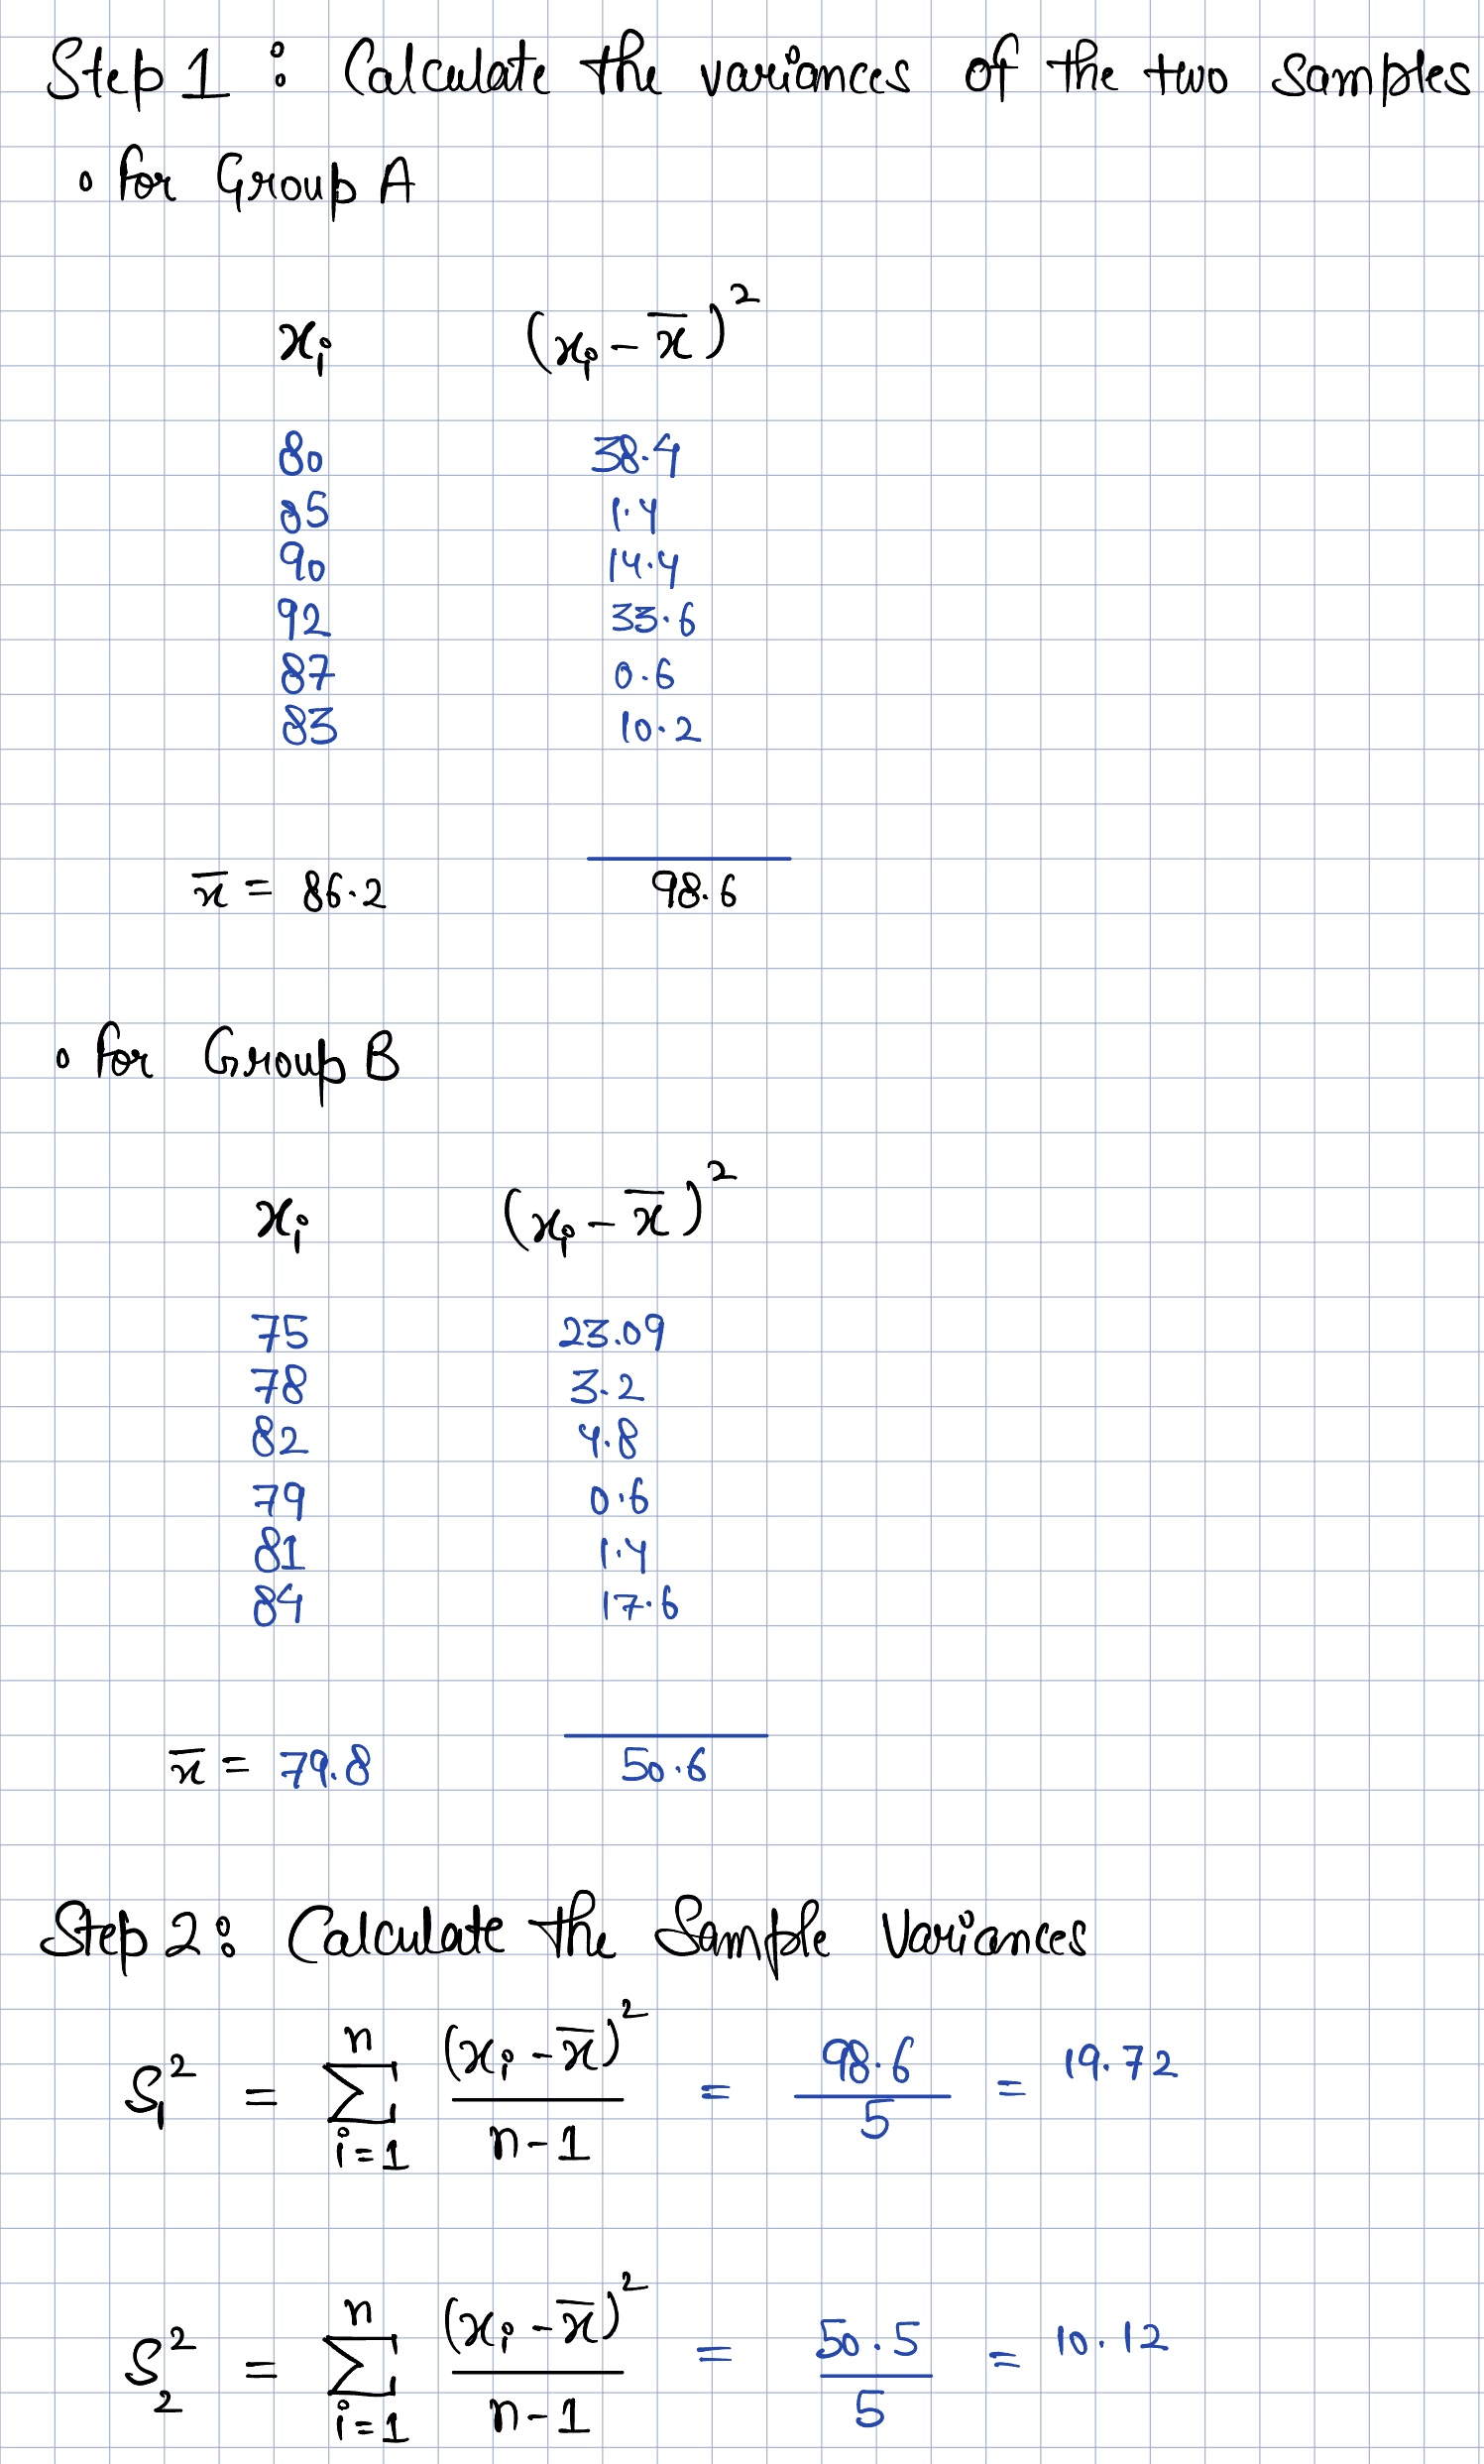 Step 1 : Calculate the variances of the two samples
• for Group A
xᵢ (xᵢ - x̄)²
80 38.4
85 1.4
90 14.4
92 33.6
87 0.6
83 10.2
x̄ = 86.2 98.6
• for Group B
xᵢ (xᵢ - x̄)²
75 23.09
78 3.2
82 4.8
79 0.6
81 1.4
84 17.6
x̄ = 79.8 50.6
Step 2: Calculate the Sample Variances
S₁² = Σⁿᵢ₌₁ (xᵢ - x̄)² / n-1 = 98.6 / 5 = 19.72
S₂² = Σⁿᵢ₌₁ (xᵢ - x̄)² / n-1 = 50.5 / 5 = 10.12